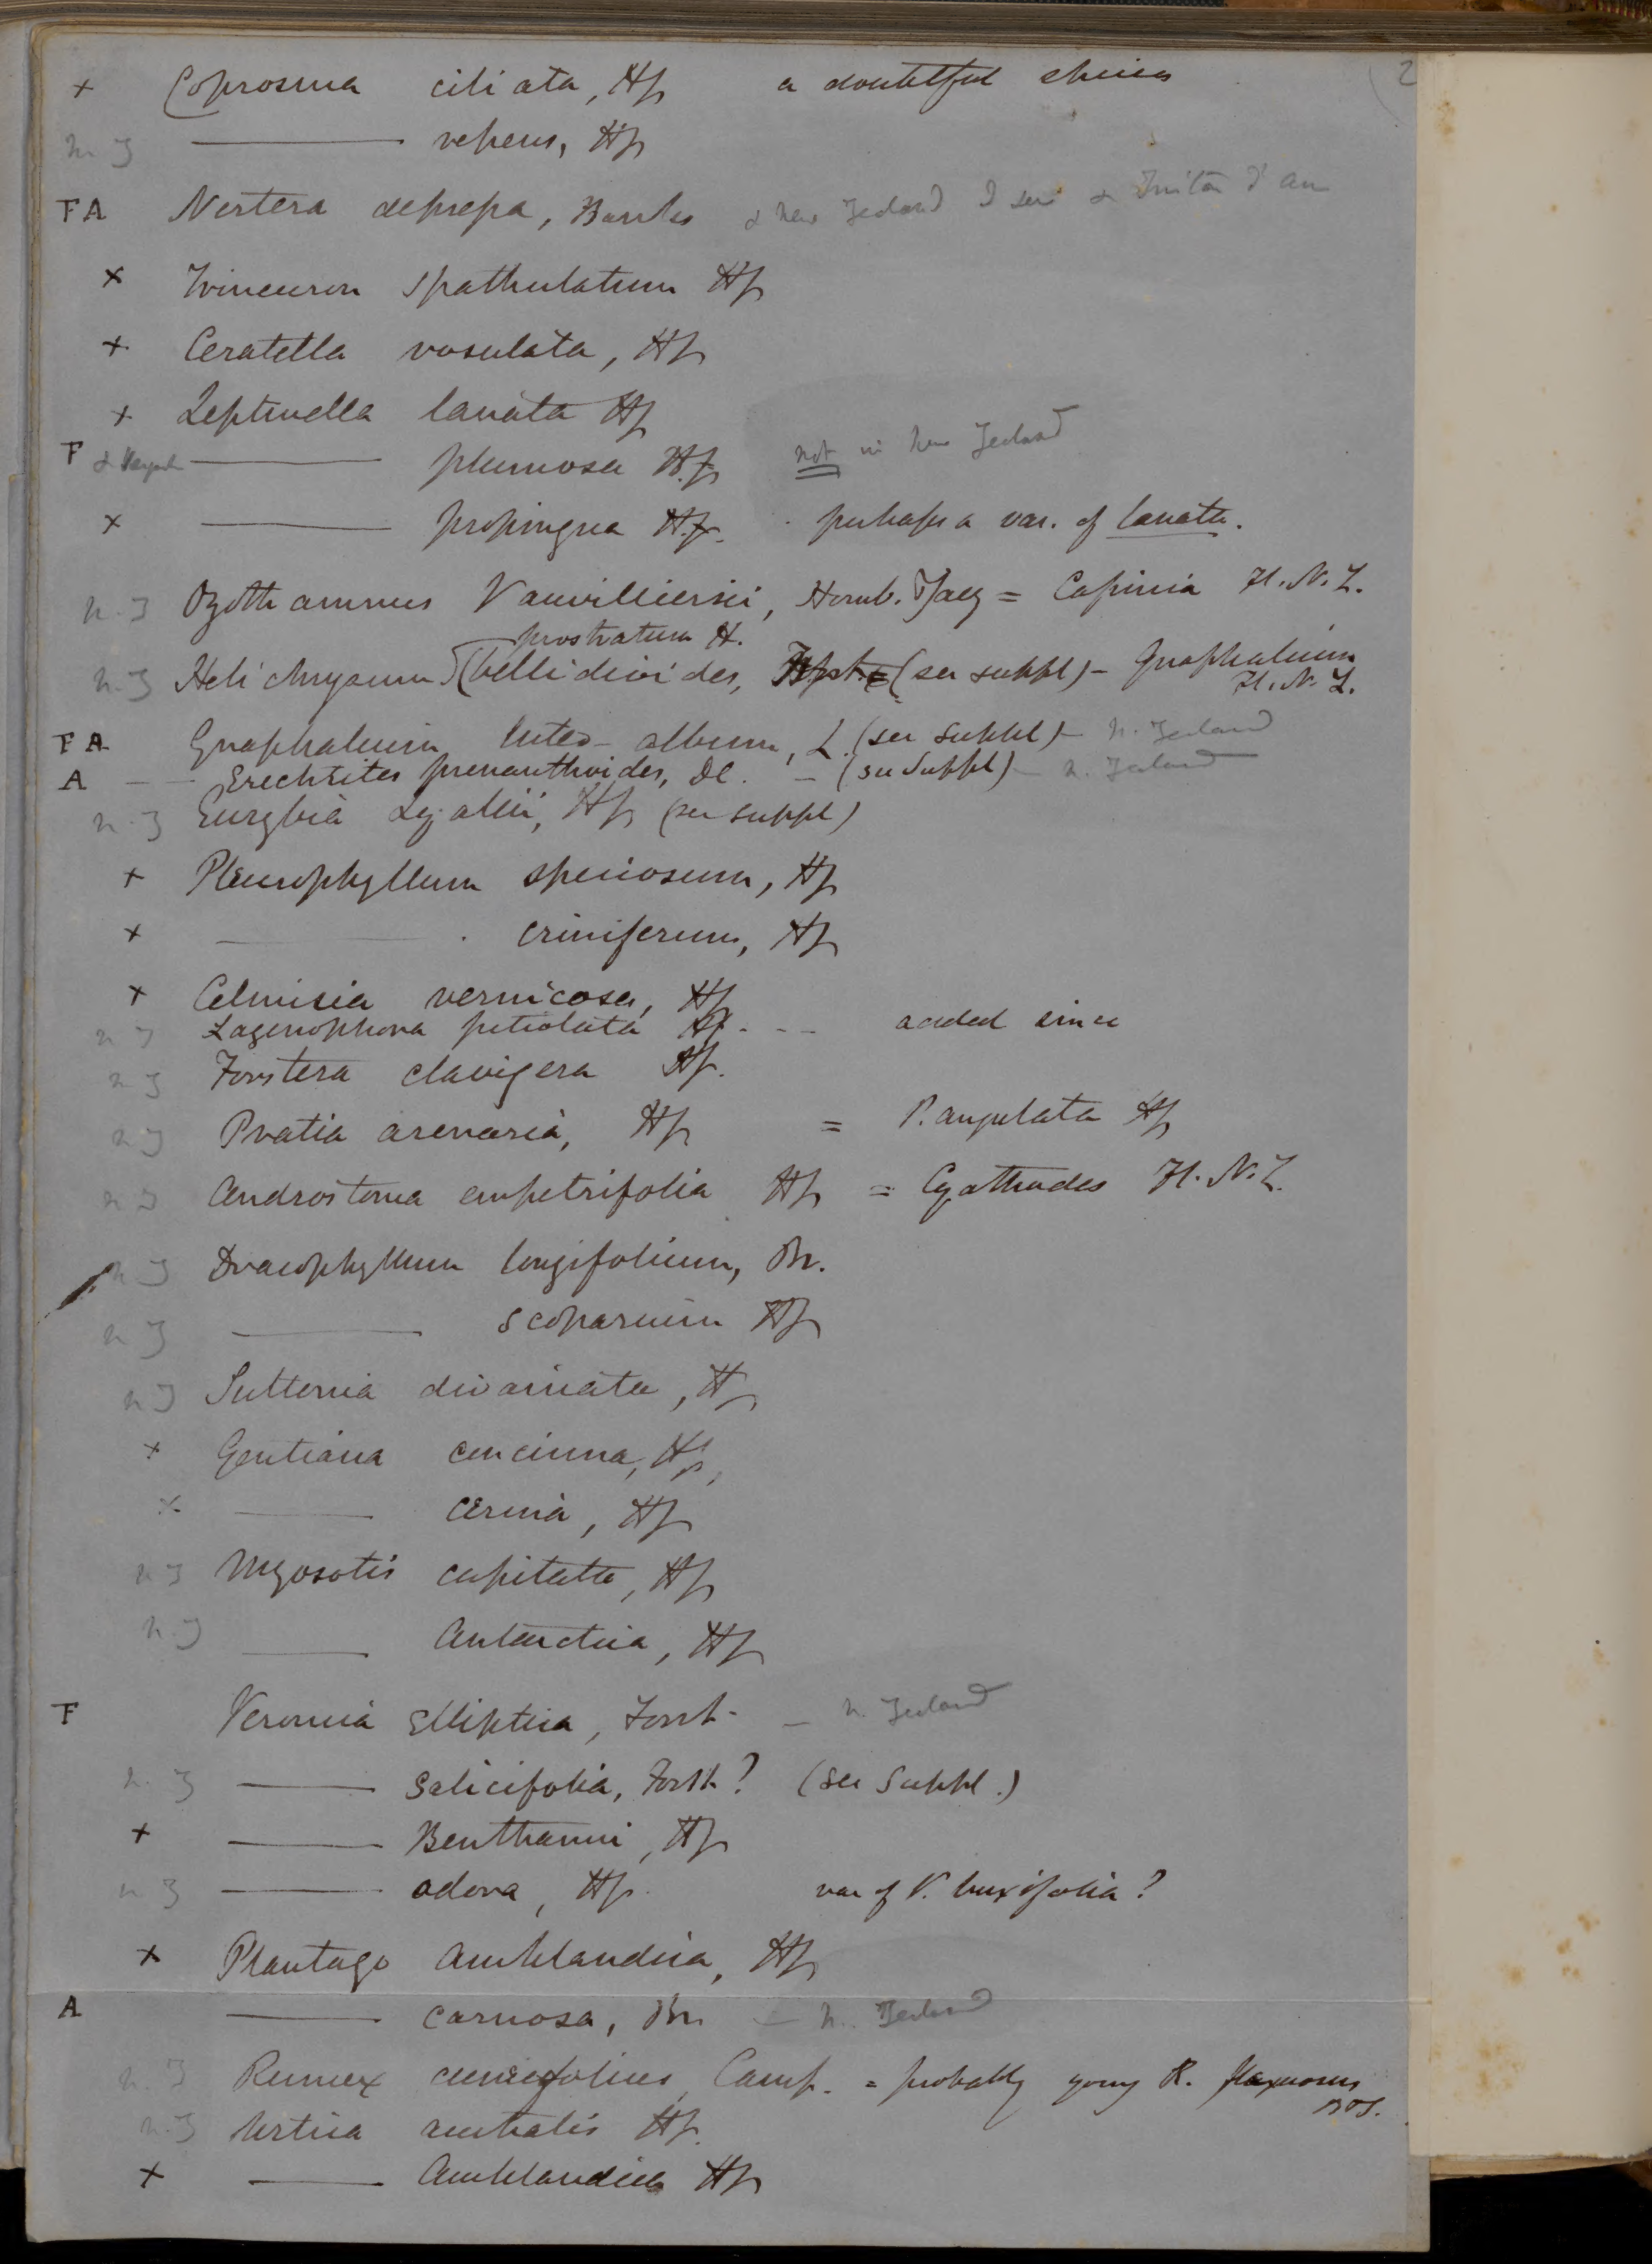 2
+ Coprosma ciliata, Hf a doubtful species
N. Z ——— repens, Hf
FA Nertera depressa, Banks & New Zealand
× Trineuron spathulatum Hf
+ Ceratella rosulata, Hf
+ Leptinella lanata Hf
F & ——— plumosa H.f. not in New Zealand
× ——— propinqua H.f. perhaps a var. of lanata.
N. Z Ozothamnus Vauvilliersii, Homb. & Jacq = Cassinia Fl. N. Z.
prostratum H.
N. Z Helichrysum (bellidioides, (see suppl) - Gnaphalium
Fl. N. Z.
FA Gnaphalium luteo-album, L. (see suppl) - N. Zealand
A — — Erechtites prenanthoides, DC. - (see Suppl) - N. Zealand
N. Z Eurybia Lyallii, Hf (see suppl)
+ Pleurophyllum speciosum, Hf
× ——— criniferum, Hf
+ Celmisia vernicosa, Hf
N Z Lagenophora petiolata Hf - - - added since
N Z Forstera clavigera Hf.
N Z Pratia arenaria, Hf = P. angulata Hf
N Z Androstoma empetrifolia Hf = Cyathodes Fl. N. Z.
N Z Dracophyllum longifolium, Br.
N Z ——— scoparium Hf
N Z Suttonia divaricata, Hf
× Gentiana concinna, Hf,
× ——— cerina, Hf
N Z Myosotis capitata, Hf
N. Z ——— Antarctica, Hf
F Veronica elliptica, Forst. — N. Zealand
N. Z ——— salicifolia, Forst.? (see Suppl.)
+ ——— Benthami, Hf
N Z ——— odora, Hf. var of V. buxifolia?
× Plantago Aucklandica, Hf
A ——— carnosa, Br. — N. Zealand
N. Z Rumex cuneifolius, Camp. = probably young R. flexuosus
N. Z Urtica australis Hf.
+ ——— Aucklandica Hf